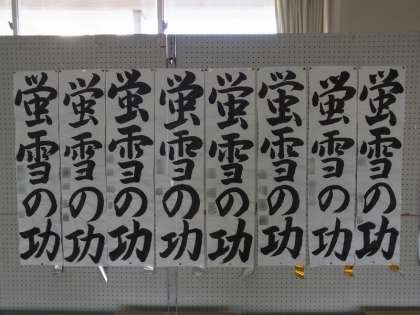 蛍雪の功
蛍雪の功
蛍雪の功
蛍雪の功
蛍雪の功
蛍雪の功
蛍雪の功
蛍雪の功